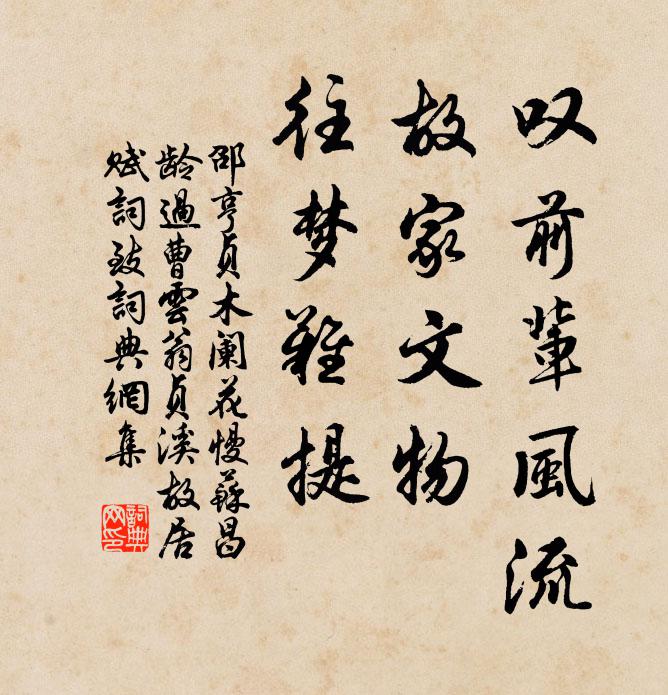 叹前辈風流
故家文物
往梦難提
邵亨貞木闌花慢蘇昌
龄過曹雲翁貞溪故居
赋詞致詞典網集
詞典
网印